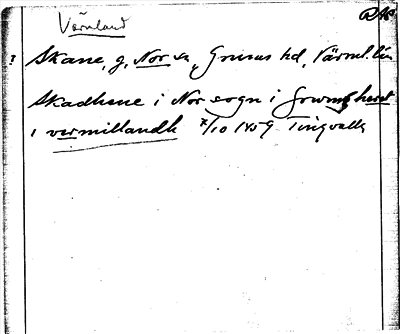 Värmland
? Skane, g, Nor sn, Grums hd, Värml. län
Skadhene i Nor sogn i Grums heret
i vermillandh 7/10 1459 Tingvalla